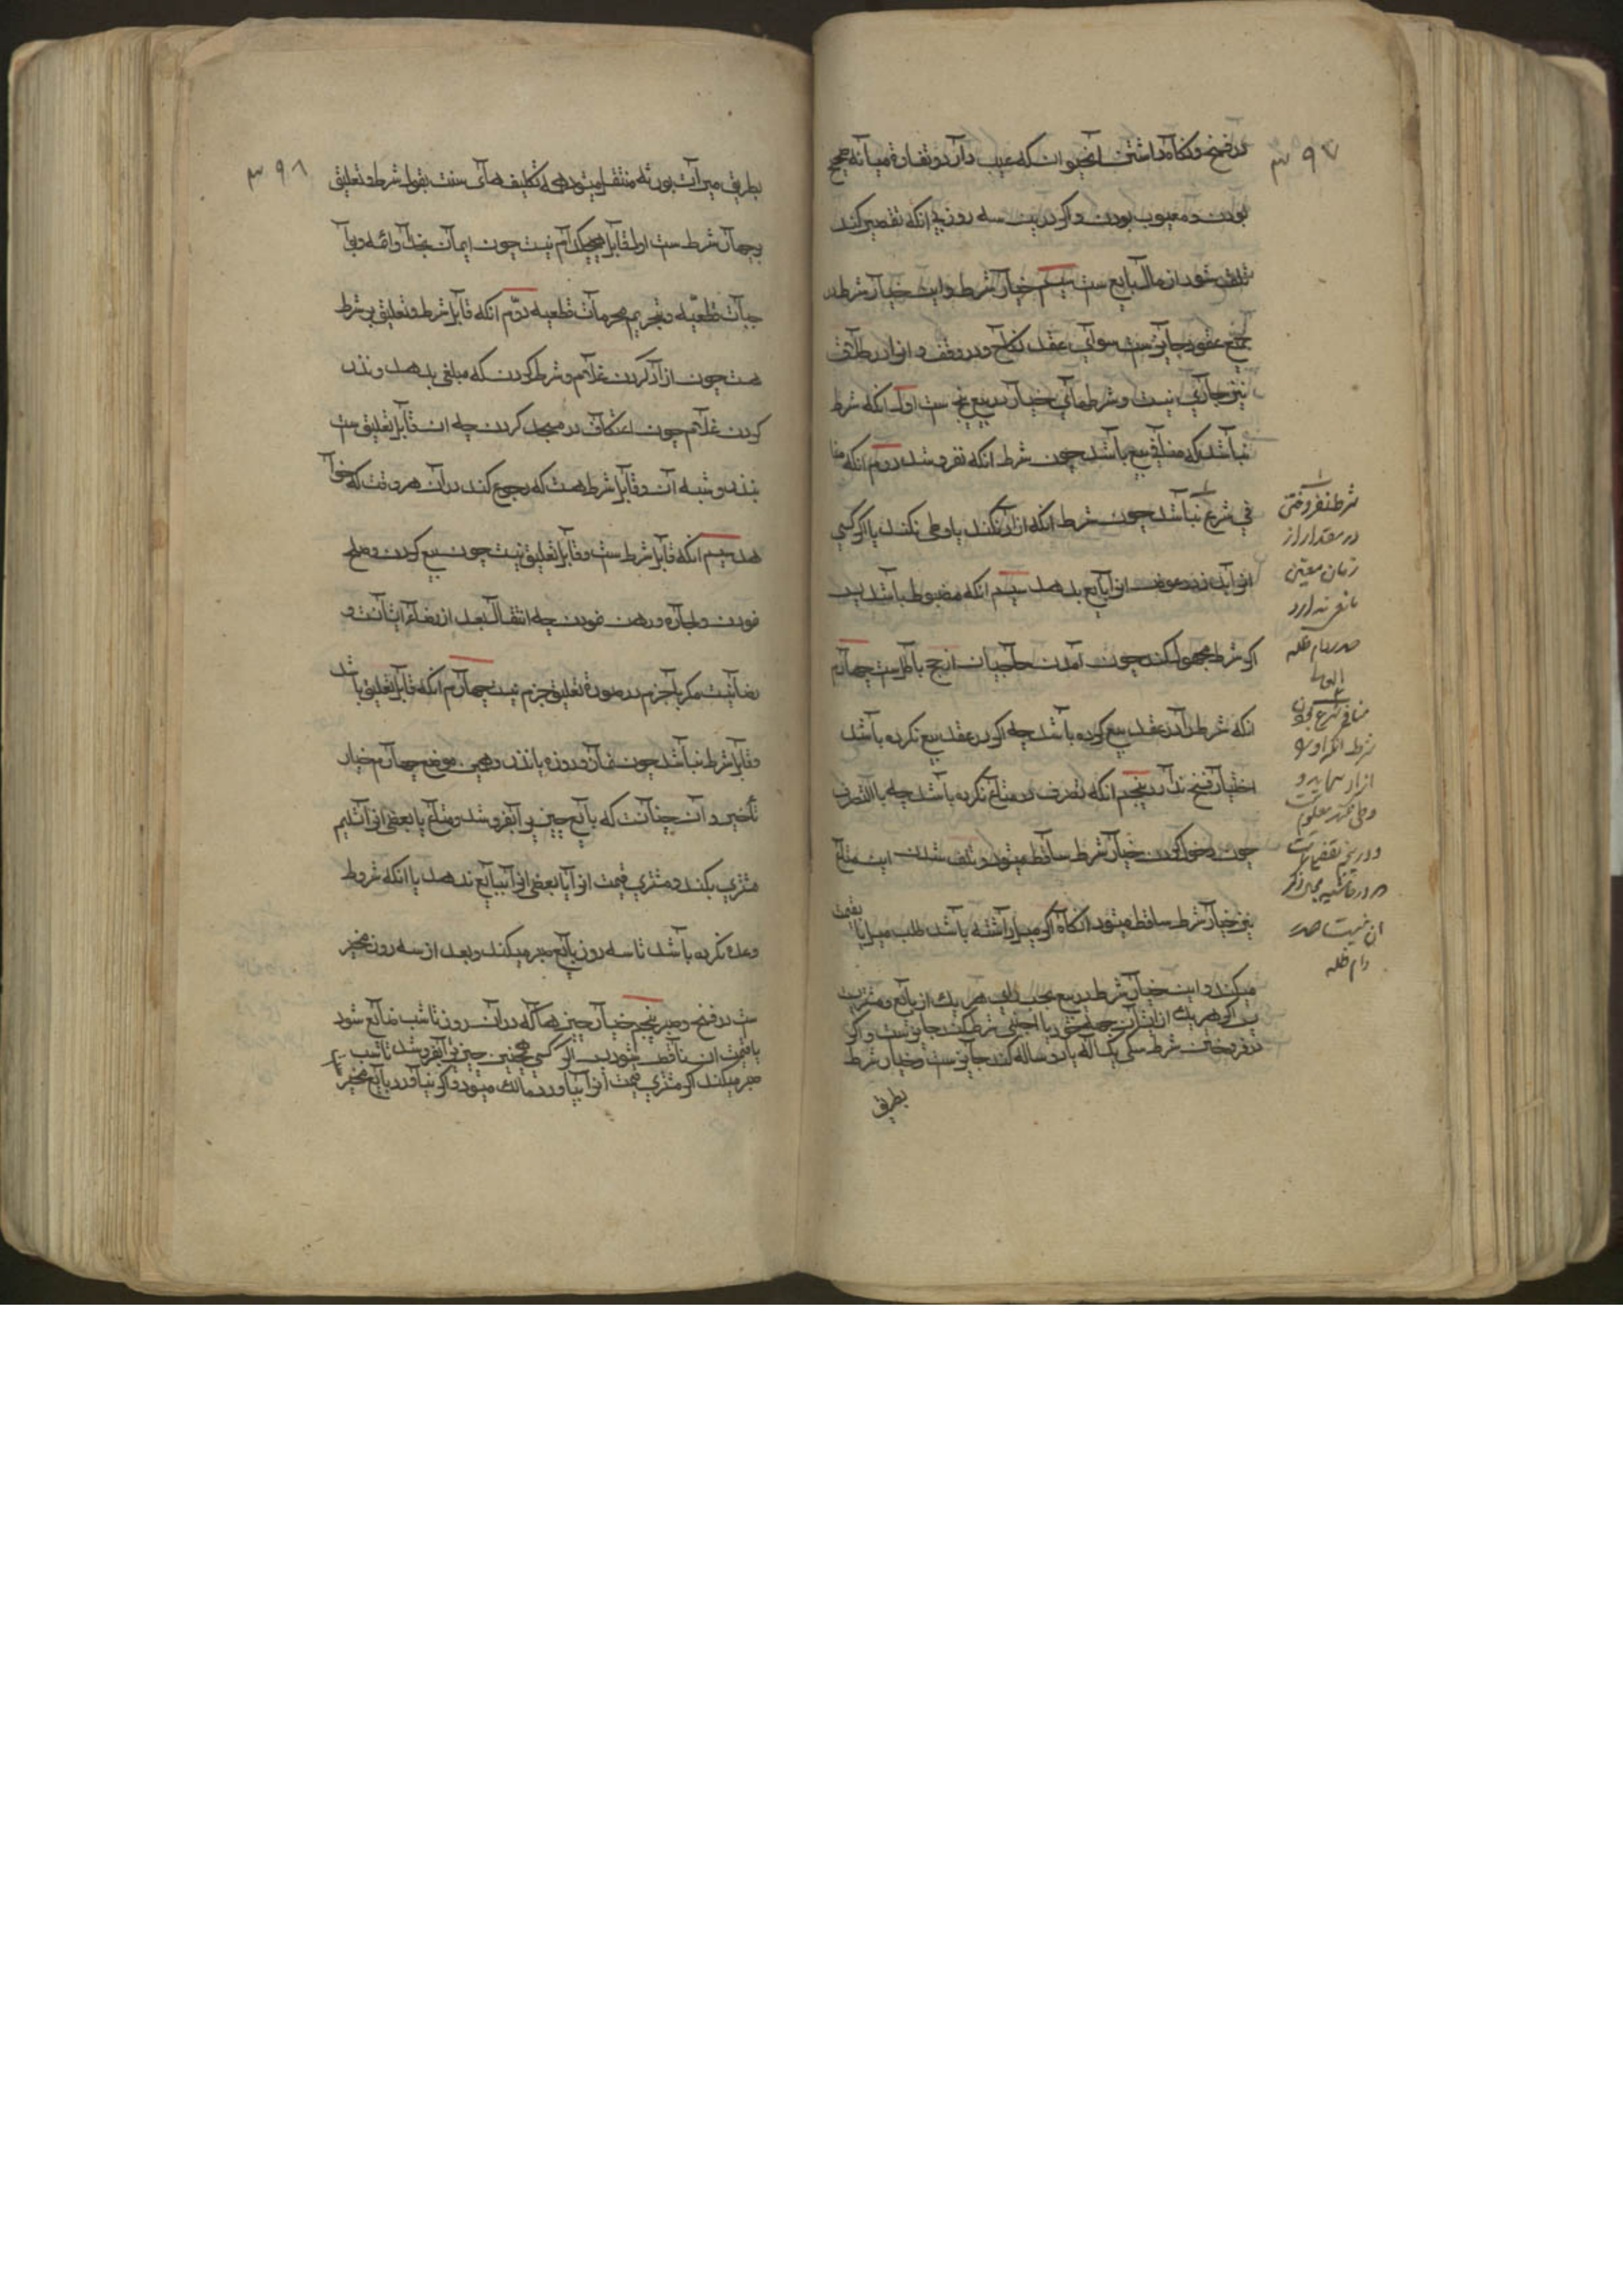 ۳۹۷
در فسخ و نگاه داشتن انحیوان که عیب دارد و تفاوة میانه صحیح
بودن و معیوب بودن و اگر درین سه روز بی انکه تقصیر کند
تلف شود از مال بایع ست سیم خیار شرط و این خیار شرط در
جمیع عقود جایز ست سوای عقد نکاح و در وقف و ابراء و طلاق
نیز جاری نیست و شرطهای خیار در بیع پنج ست اول انکه شرط
نباشد که منافی بیع باشد چون شرط انکه نفروشد دوم انکه منا
فی شرع نباشد چون شرط انکه ازاد نکند یا وطی نکند یا اگر کسی
انرا بدزدد عوض انرا بایع بدهد سیم انکه مضبوط باشد پس
اگر شرط مجهول کند چون آمدن حاجیان از حج باطل ست چهارم
انکه شرط را در عقد بیع کرده باشد چه اگر در عقد بیع نکرده باشد
اختیار فسخ ندارد پنجم انکه تصرف در متاع نکرده باشد چه با التصرف
چون دخول کردن خیار شرط ساقط میشود و تلف شدن این متاع
نیز خیار شرط ساقط میشود انگاه اگر مبیع را داشته باشد طلب میل یا بقیمت
میکند و این خیار شرط در بیع بحسب رای هر یک از بایع و مشتریست
پس اگر هر یک از ایشان جهة خود یا اجنبی شرط کند جایز ست و اگر
در فروختن شرط سکنی یکساله یا دو ساله کند جایز ست و خیار شرط
بطریق
شرط نفروختن
در مقدار از
زمان معین
مانعی ندارد
مدظله
منافی شرع بودن
شرط انکه او را
ازاد ننماید و
وطی نکند معلوم نیست
و در این تفصیل است
که در حاشیه محل ذکر
ان نیست مد
دام ظله
۳۹۸
بطریق میراث بورثه منتقل میشود همه تکلیف های سنت بقول شرط و تعلیق
بر چهار شرط ست اول قابل هیچکدام نیست چون ایمان بخدا و ائمه و وا
جبات قطعیه و تحریم محرمات قطعیه دوم انکه قابل شرط و تعلیق بر شرط
هست چون ازاد کردن غلام و شرط کردن که مبلغی بدهد و نذر
کردن غلام چون اعتکاف در مسجد کردن چه ان قابل تعلیق ست
بنذر و شبه آن و قابل شرط هست که رجوع کند در آن هر وقت که خوا
هد سیم انکه قابل شرط ست و قابل تعلیق نیست چون بیع کردن و صلح
نمودن و اجاره و رهن نمودن چه انتقال بعد از رضاء ایشانست و
رضا نیست مگر با جزم در صورة تعلیق جزم نیست چهارم انکه قابل تعلیق باشد
و قابل شرط نباشد چون نماز و روزه با نذر و همین موضع چهارم خیار
تأخیر و آن چنانست که بایع چیزیرا بفروشد و متاع یا بعضی انرا تسلیم
مشتری بکند و مشتری قیمت انرا یا بعضی انرا ببایع ندهد با انکه شروط
وعده نکرده باشد تا سه روز بایع صبر میکند و بعد از سه روز مخیر
ست در فسخ و صبر پنجم خیار چیزها که در آن روز تا شب ضایع شود
یا قیمت ان ناقص شود پس اگر کسی همچنین چیزیرا بفروشد تا شب
صبر میکند اگر مشتری قیمت انرا بیاورد مالک میشود و اگر نیاورد بایع مخیر